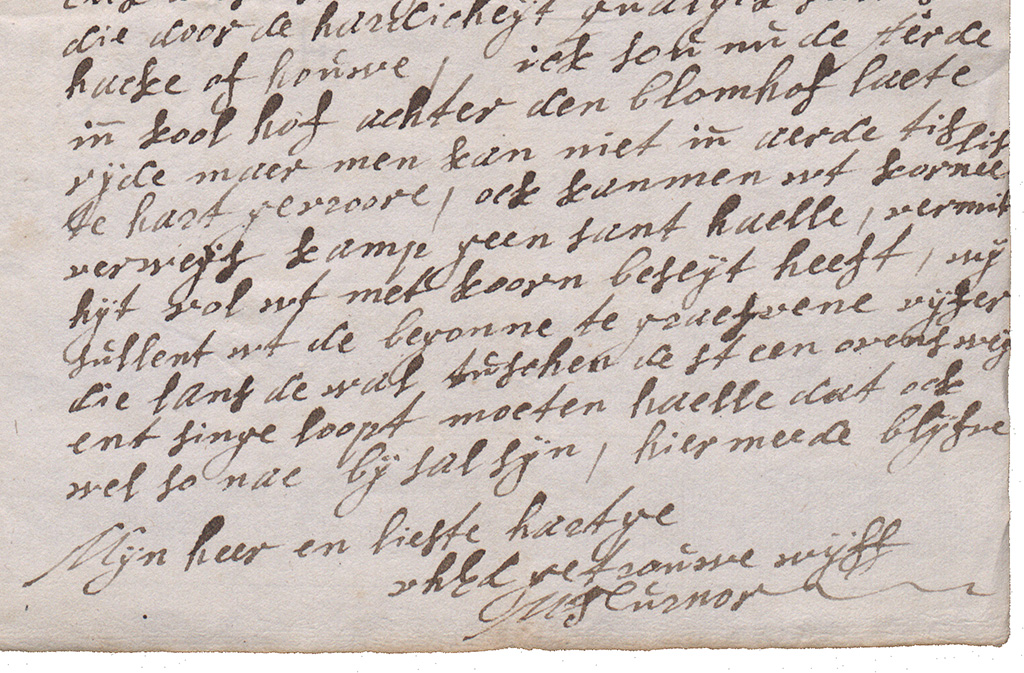 die door de hardicheyt qualyck
hacke of houwe / ick sou nu de aerde
in kool hof achter den blomhof laete
ryde maer men kan niet in aerde tis
te hart gevroore / ock kanmen wt
verweys kamp geen sant haelle / vermit
hyt vol wt met koorn beseyt heeft / wy
sullent wt de begonne te graefvene vyfer
die lans de wal tusschen de steen ovens weg
ent singe loopt moeten haelle dat ock
wel so nae by sal syn / hier meede blyfve
Myn heer en liefste hartge
uhEd getrouwe wyff
M Turnor